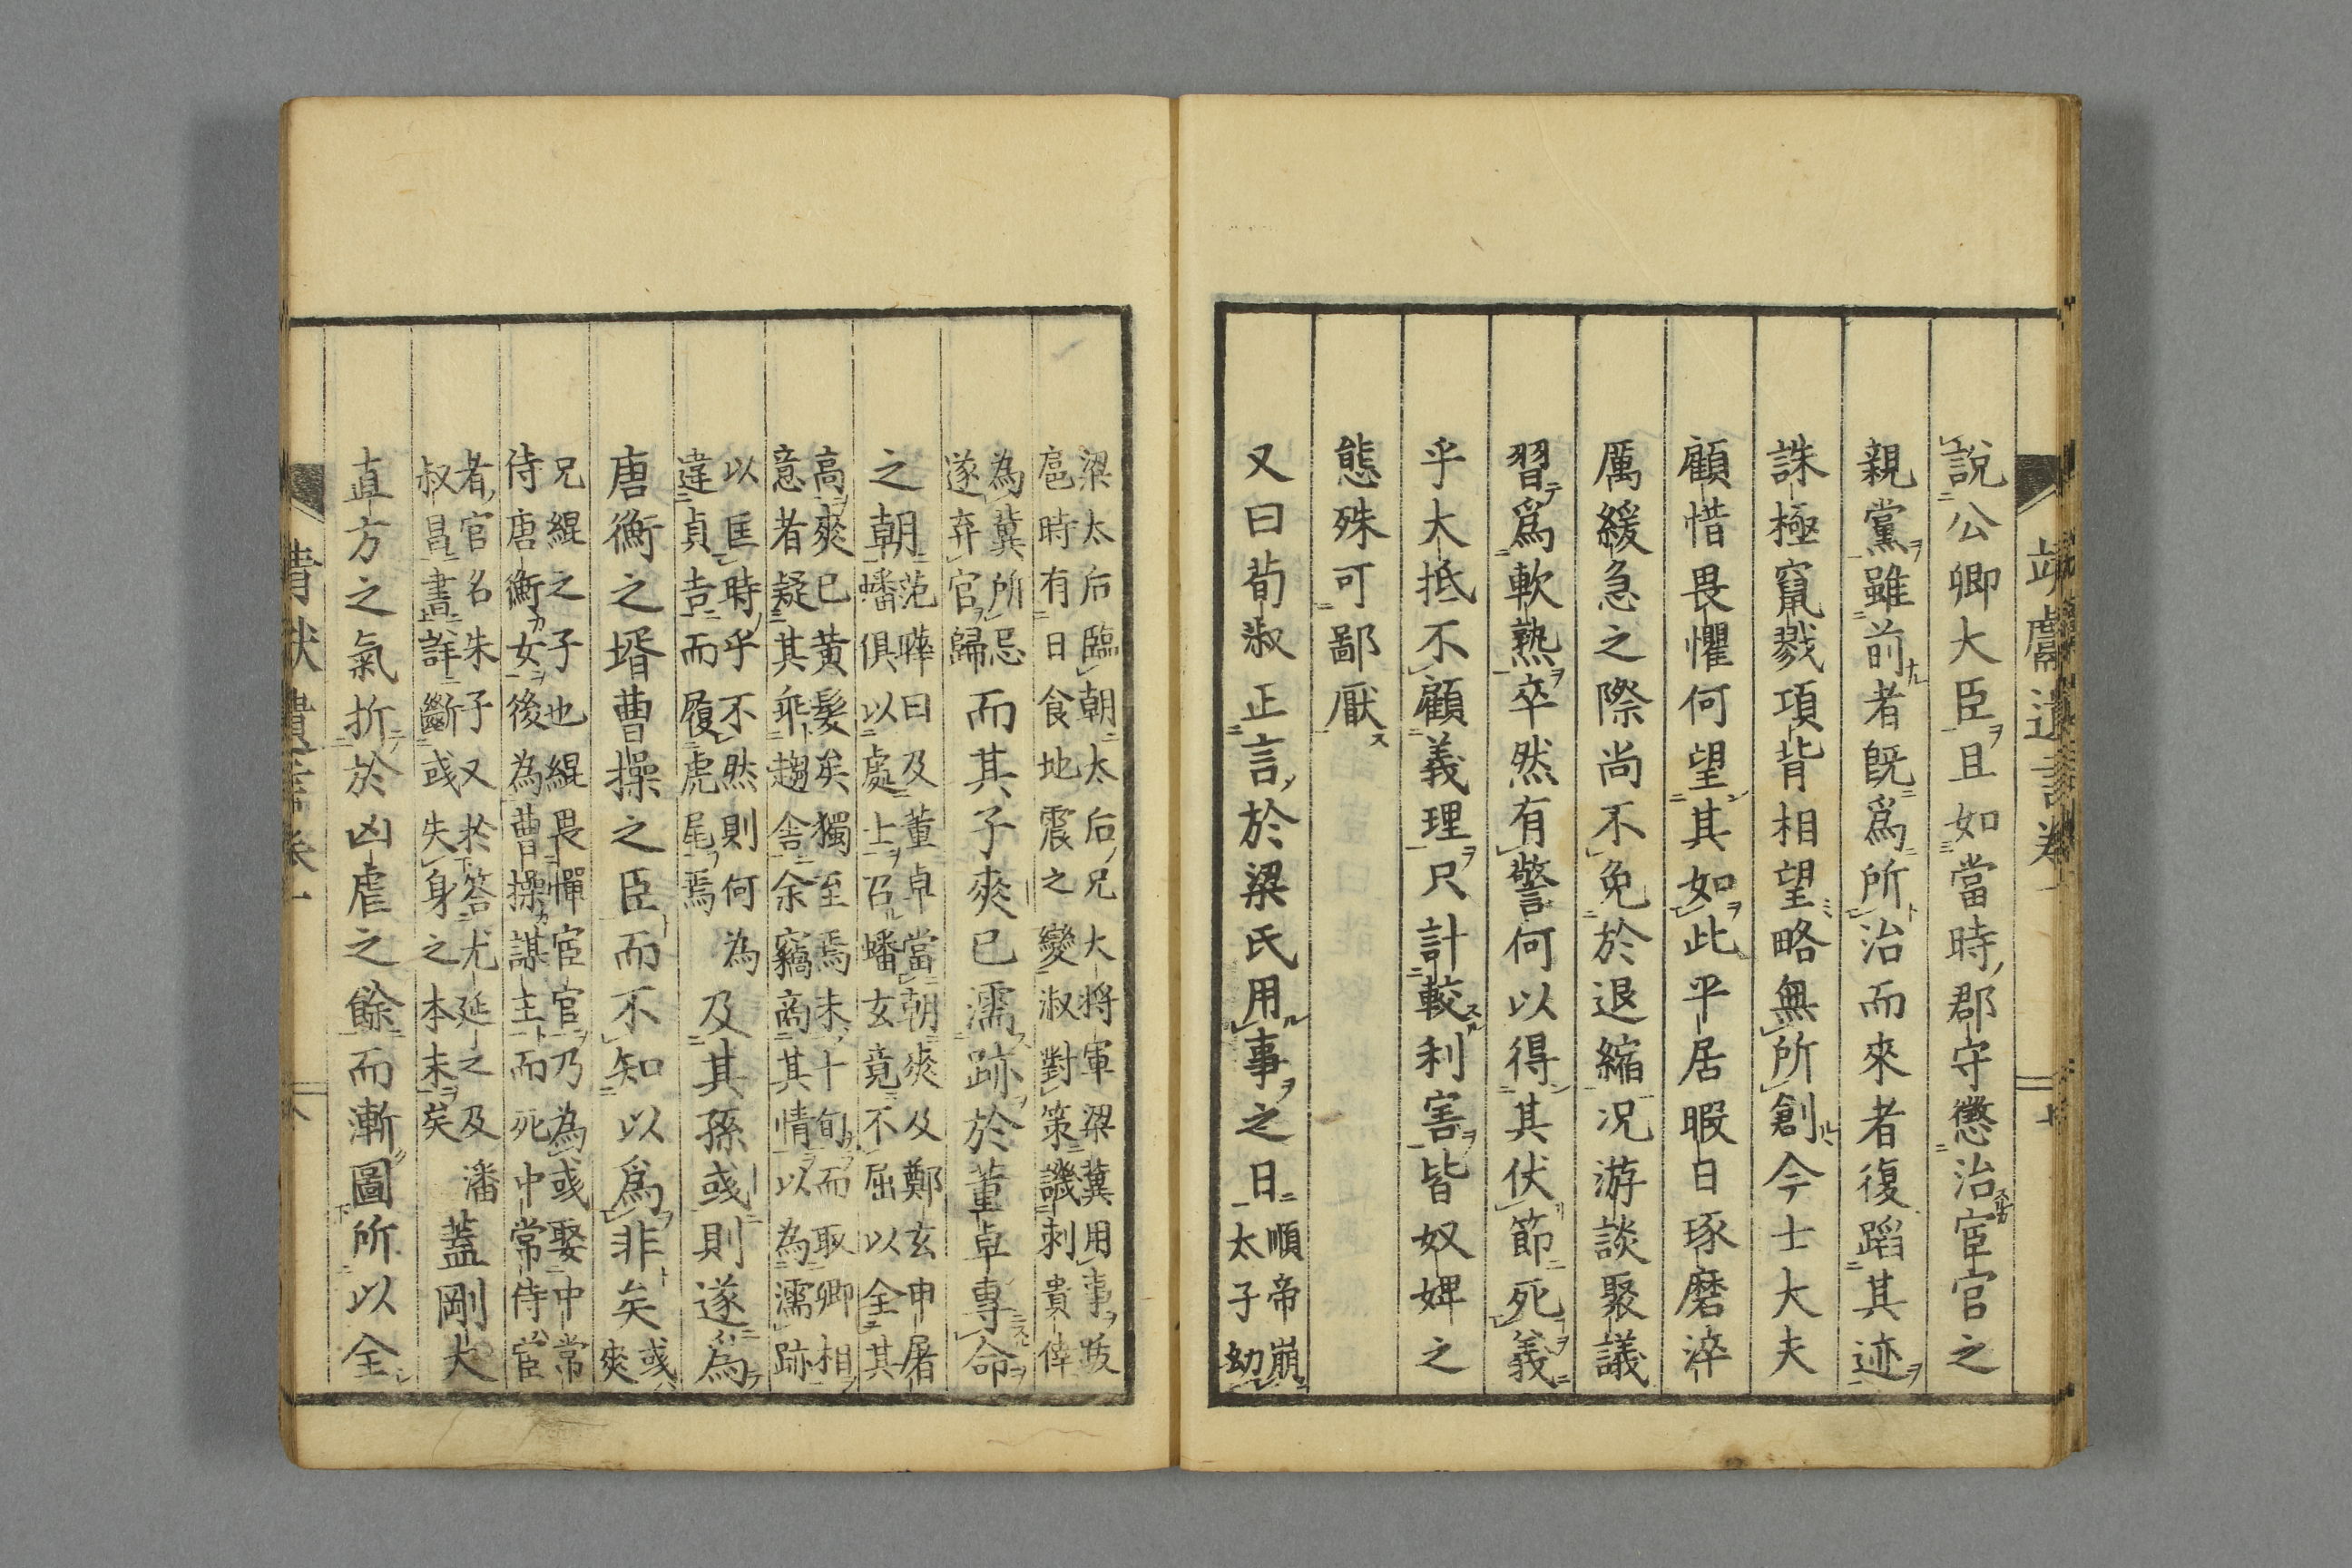 靖獻遺言卷一
七
説公卿大臣且如當時郡守懲治宦官之
親黨雖前者既爲所治而來者復蹈其迹
誅極竄戮項背相望略無所創今士大夫
顧惜畏懼何望其如此平居暇日琢磨淬
厲緩急之際尚不免於退縮况游談聚議
習爲軟熟卒然有警何以得其伏節死義
乎大抵不顧義理只計較利害皆奴婢之
態殊可鄙厭
又曰荀淑正言於梁氏用事之日順帝崩
太子幼
梁太后臨朝太后兄大将軍梁冀用事跋
扈時有日食地震之變淑對策譏刺貴倖
為冀所忌
遂弃官歸而其子爽已濡跡於董卓專命
之朝范曄曰及董卓當朝爽及鄭玄申屠
蟠俱以處士召蟠玄竟不屈以全其
高爽已黄髮矣獨至焉未十旬而取卿相
意者疑其乖趨舎余竊商其情以為濡跡
以匡時乎不然則何為
違貞吉而履虎尾焉及其孫彧則遂爲
唐衡之壻曹操之臣而不知以爲非矣彧
爽
兄緄之子也緄畏憚宦官乃為彧娶中常
侍唐衡女後為曹操謀主而死中常侍宦
者官名朱子又於答尤延之及潘
叔昌書詳斷彧失身之本末矣蓋剛大
直方之氣折於凶虐之餘而漸圖所以全